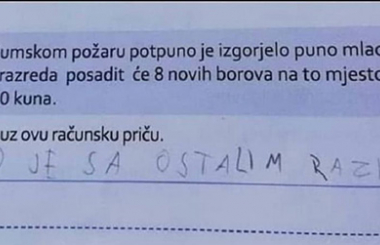 umskom požaru potpuno je izgorjelo puno mlad
razreda posadit će 8 novih borova na to mjesto
0 kuna.
uz ovu računsku priču.
JE SA OSTALIM RAZ